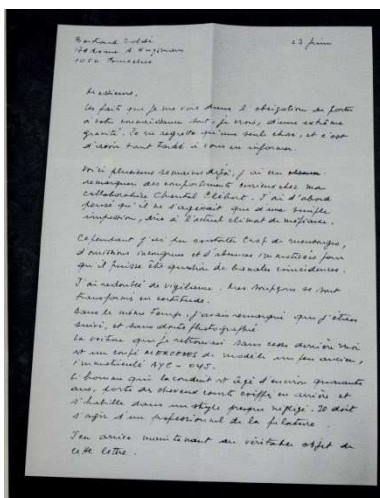 23 juin
1050 Bruxelles
Messieurs,
Un fait que je me vois dans l'obligation de porter
à votre connaissance est, je crois, d'une extrême
gravité. Je ne regrette qu'une seule chose, et c'est
d'avoir tant tardé à vous en informer.
Voici plusieurs semaines déjà, j'ai eu
remarquer des comportements curieux chez ma
collaboratrice Chantal Clébart. J'ai d'abord
pensé qu'il ne s'agissait que d'une simple
impression, due à l'actuel climat de méfiance.
Cependant j'ai pu constater trop de mensonges,
d'omissions incongrues et d'absences injustifiées pour
qu'il puisse être question de banales coïncidences.
J'ai redoublé de vigilance. Mes soupçons se sont
transformés en certitude.
Dans le même temps, j'avais remarqué que j'étais
suivi, et sans doute photographié.
La voiture que je retrouvais sans cesse derrière moi
est un coupé MERCEDES de modèle un peu ancien,
immatriculé AYC - 045.
L'homme qui la conduit est âgé d'environ quarante
ans, porte des cheveux courts coiffés en arrière et
s'habille dans un style presque négligé. Il doit
s'agir d'un professionnel de la filature.
J'en arrive maintenant au véritable objet de
cette lettre.